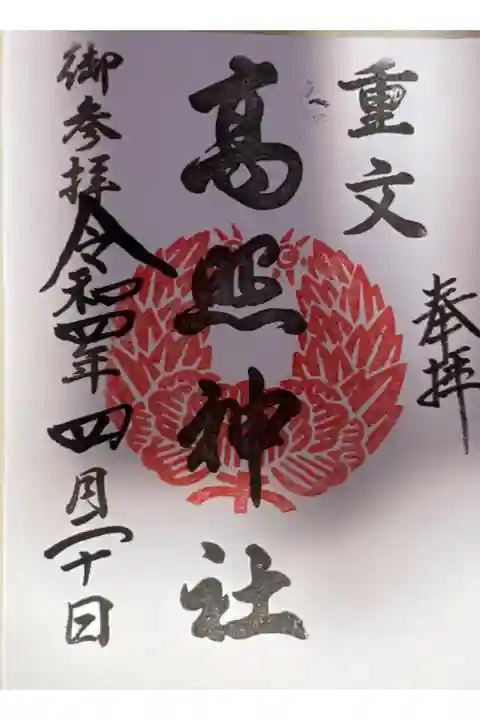 奉拝
重文
高照神社
御参拝令和四年四月二十日